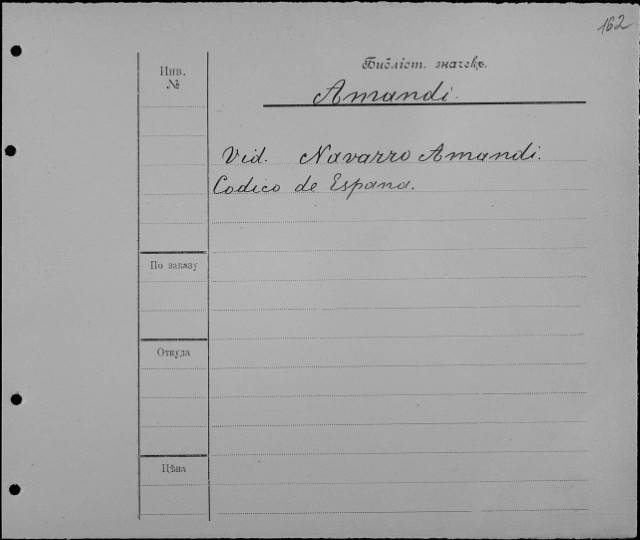 162
Инв.
№
Библіот. значекъ.
Amandi.
Vid. Navarro Amandi.
Codico de Espana.
По заказу
Откуда
Цѣна